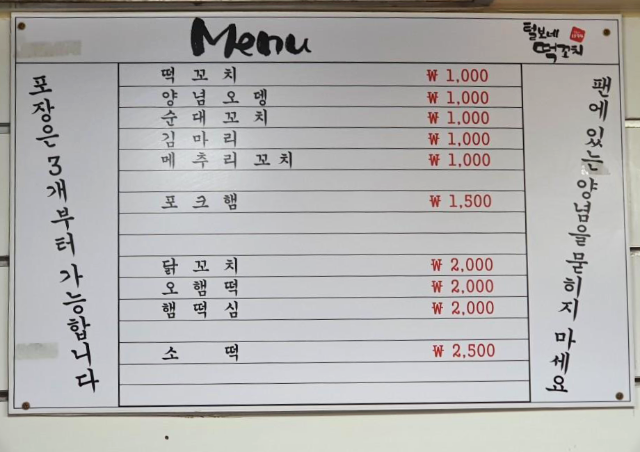 Menu
털보네
떡꼬치
포장은 3개부터 가능합니다
떡꼬치 ₩ 1,000
양념오뎅 ₩ 1,000
순대꼬치 ₩ 1,000
김마리 ₩ 1,000
메추리꼬치 ₩ 1,000
포크햄 ₩ 1,500
닭꼬치 ₩ 2,000
오햄떡 ₩ 2,000
햄떡심 ₩ 2,000
소떡 ₩ 2,500
팬에 있는 양념을 묻히지 마세요